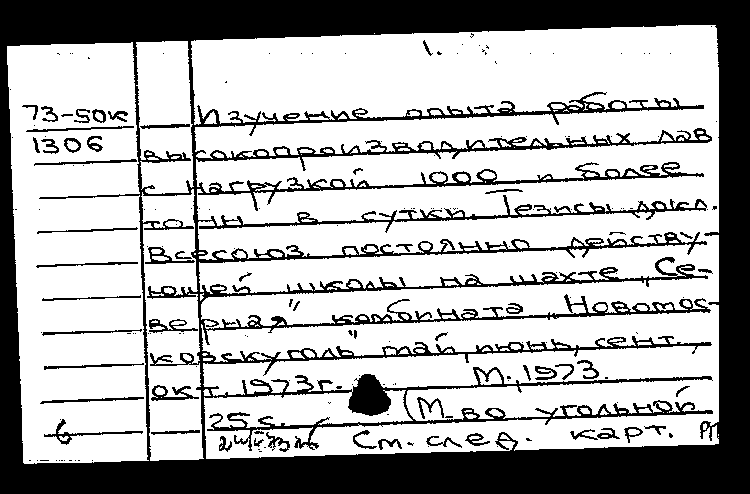 1.
73-50к Изучение опыта работы
1306 высокопроизводительных лав
с нагрузкой 1000 и более
тонн в сутки. Тезисы докл.
Всесоюз. постоянно действу-
ющей школы на шахте „Се-
верная" комбината „Новомос-
ковскуголь" май, июнь, сент.,
окт. 1973г. М., 1973.
25 с. (М-во угольной
6 См. след. карт. РП